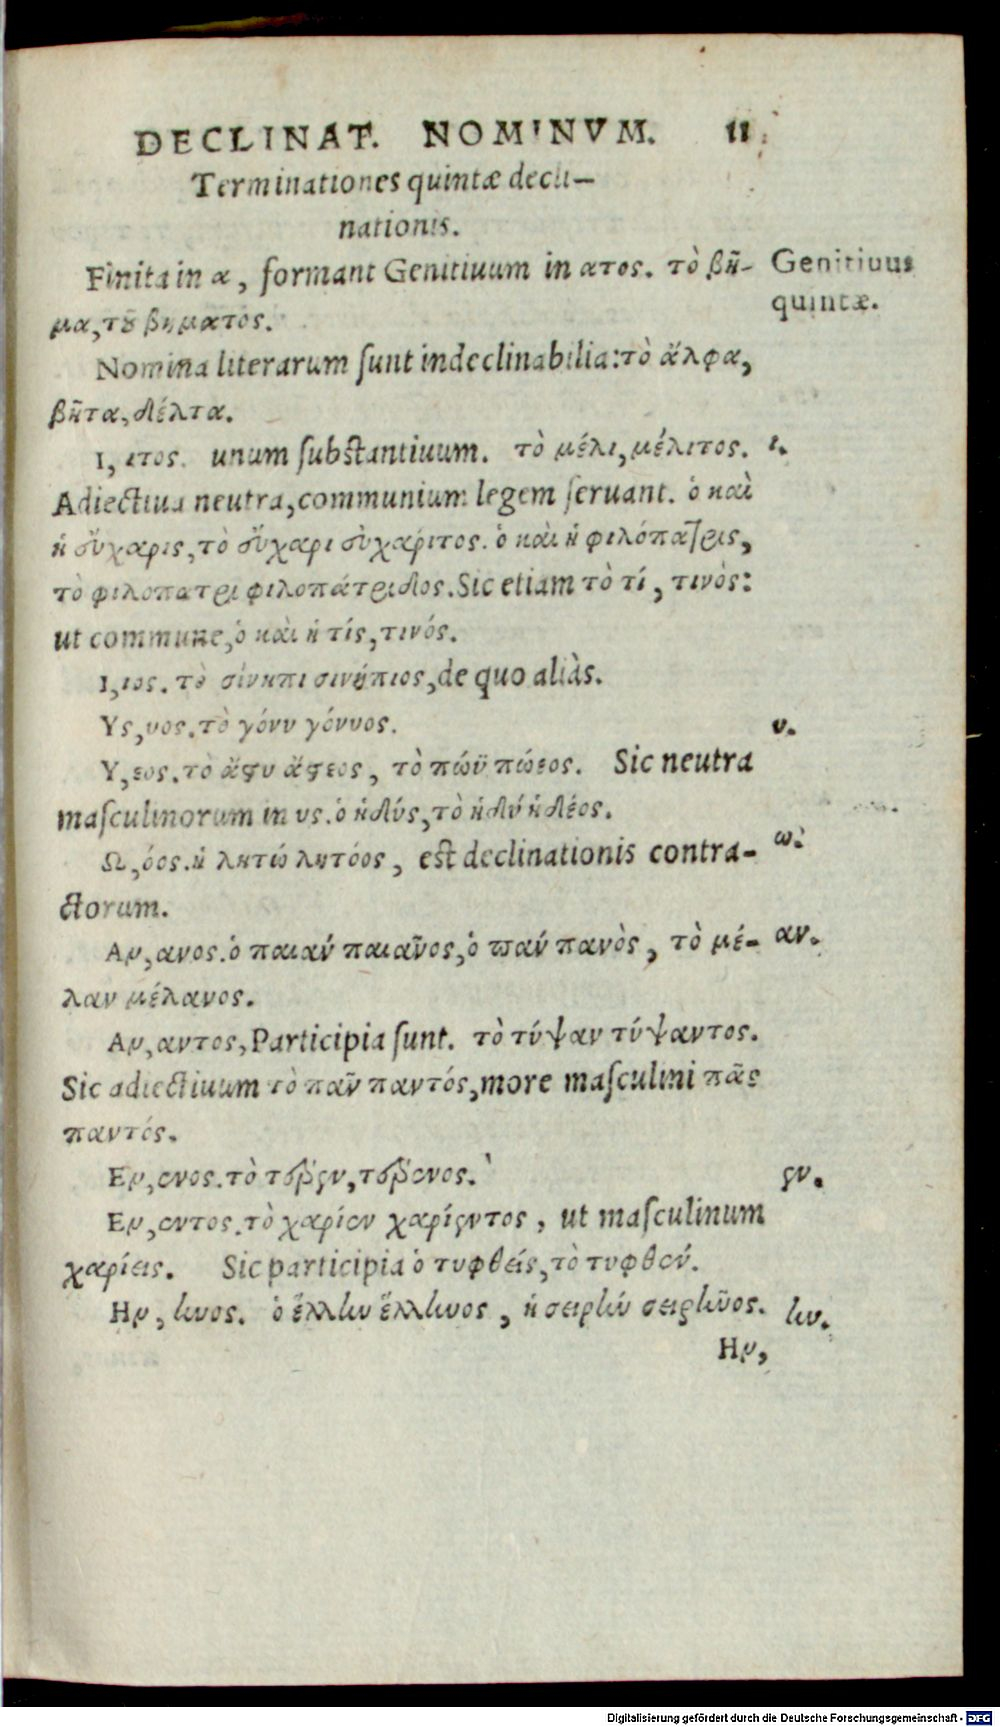 DECLINAT. NOMINVM. 11
Terminationes quintæ decli-
nationis.
Finita in α, formant Genitiuum in ατος. τὸ βῆ- Genitiuus
μα, τȣ͂ βήματος. quintæ.
Nomina literarum ſunt indeclinabilia: τὸ ἄλφα,
βῆτα, δέλτα.
Ι, ιτος. unum ſubſtantiuum. τὸ μέλι, μέλιτος. ι.
Adiectiua neutra, communium legem ſeruant. ὁ καὶ
ἡ εὔχαρις, τὸ εὔχαρι εὐχάριτος. ὁ καὶ ἡ φιλόπατρις,
τὸ φιλόπατρι φιλοπάτριδος. Sic etiam τὸ τί, τινὸς:
ut commune, ὁ καὶ ἡ τίς, τινός.
Ι, ιος. τὸ σίνηπι σινήπιος, de quo aliàs.
Υς, υος. τὸ γόνυ γόνυος. υ.
Υ, εος. τὸ ἄϛυ ἄϛεος, τὸ πώϋ πώεος. Sic neutra
maſculinorum in υς. ὁ ἡδύς, τὸ ἡδύ ἡδέος.
Ω, όος. ἡ λητώ λητόος, eſt declinationis contra- ω.
ctorum.
Αν, ανος. ὁ παιάν παιᾶνος, ὁ πάν πανὸς, τὸ μέ- αν.
λαν μέλανος.
Αν, αντος, Participia ſunt. τὸ τύψαν τύψαντος.
Sic adiectiuum τὸ πᾶν παντός, more maſculini πᾶς
παντός.
Εν, ενος. τὸ τέρεν, τέρενος. εν.
Εν, εντος. τὸ χαρίεν χαρίεντος, ut maſculinum
χαρίεις. Sic participia ὁ τυφθείς, τὸ τυφθέν.
Ην, ηνος. ὁ ἕλλην ἕλληνος, ἡ σειρήν σειρῆνος. ην.
Ην,
Digitalisierung gefördert durch die Deutsche Forschungsgemeinschaft - DFG